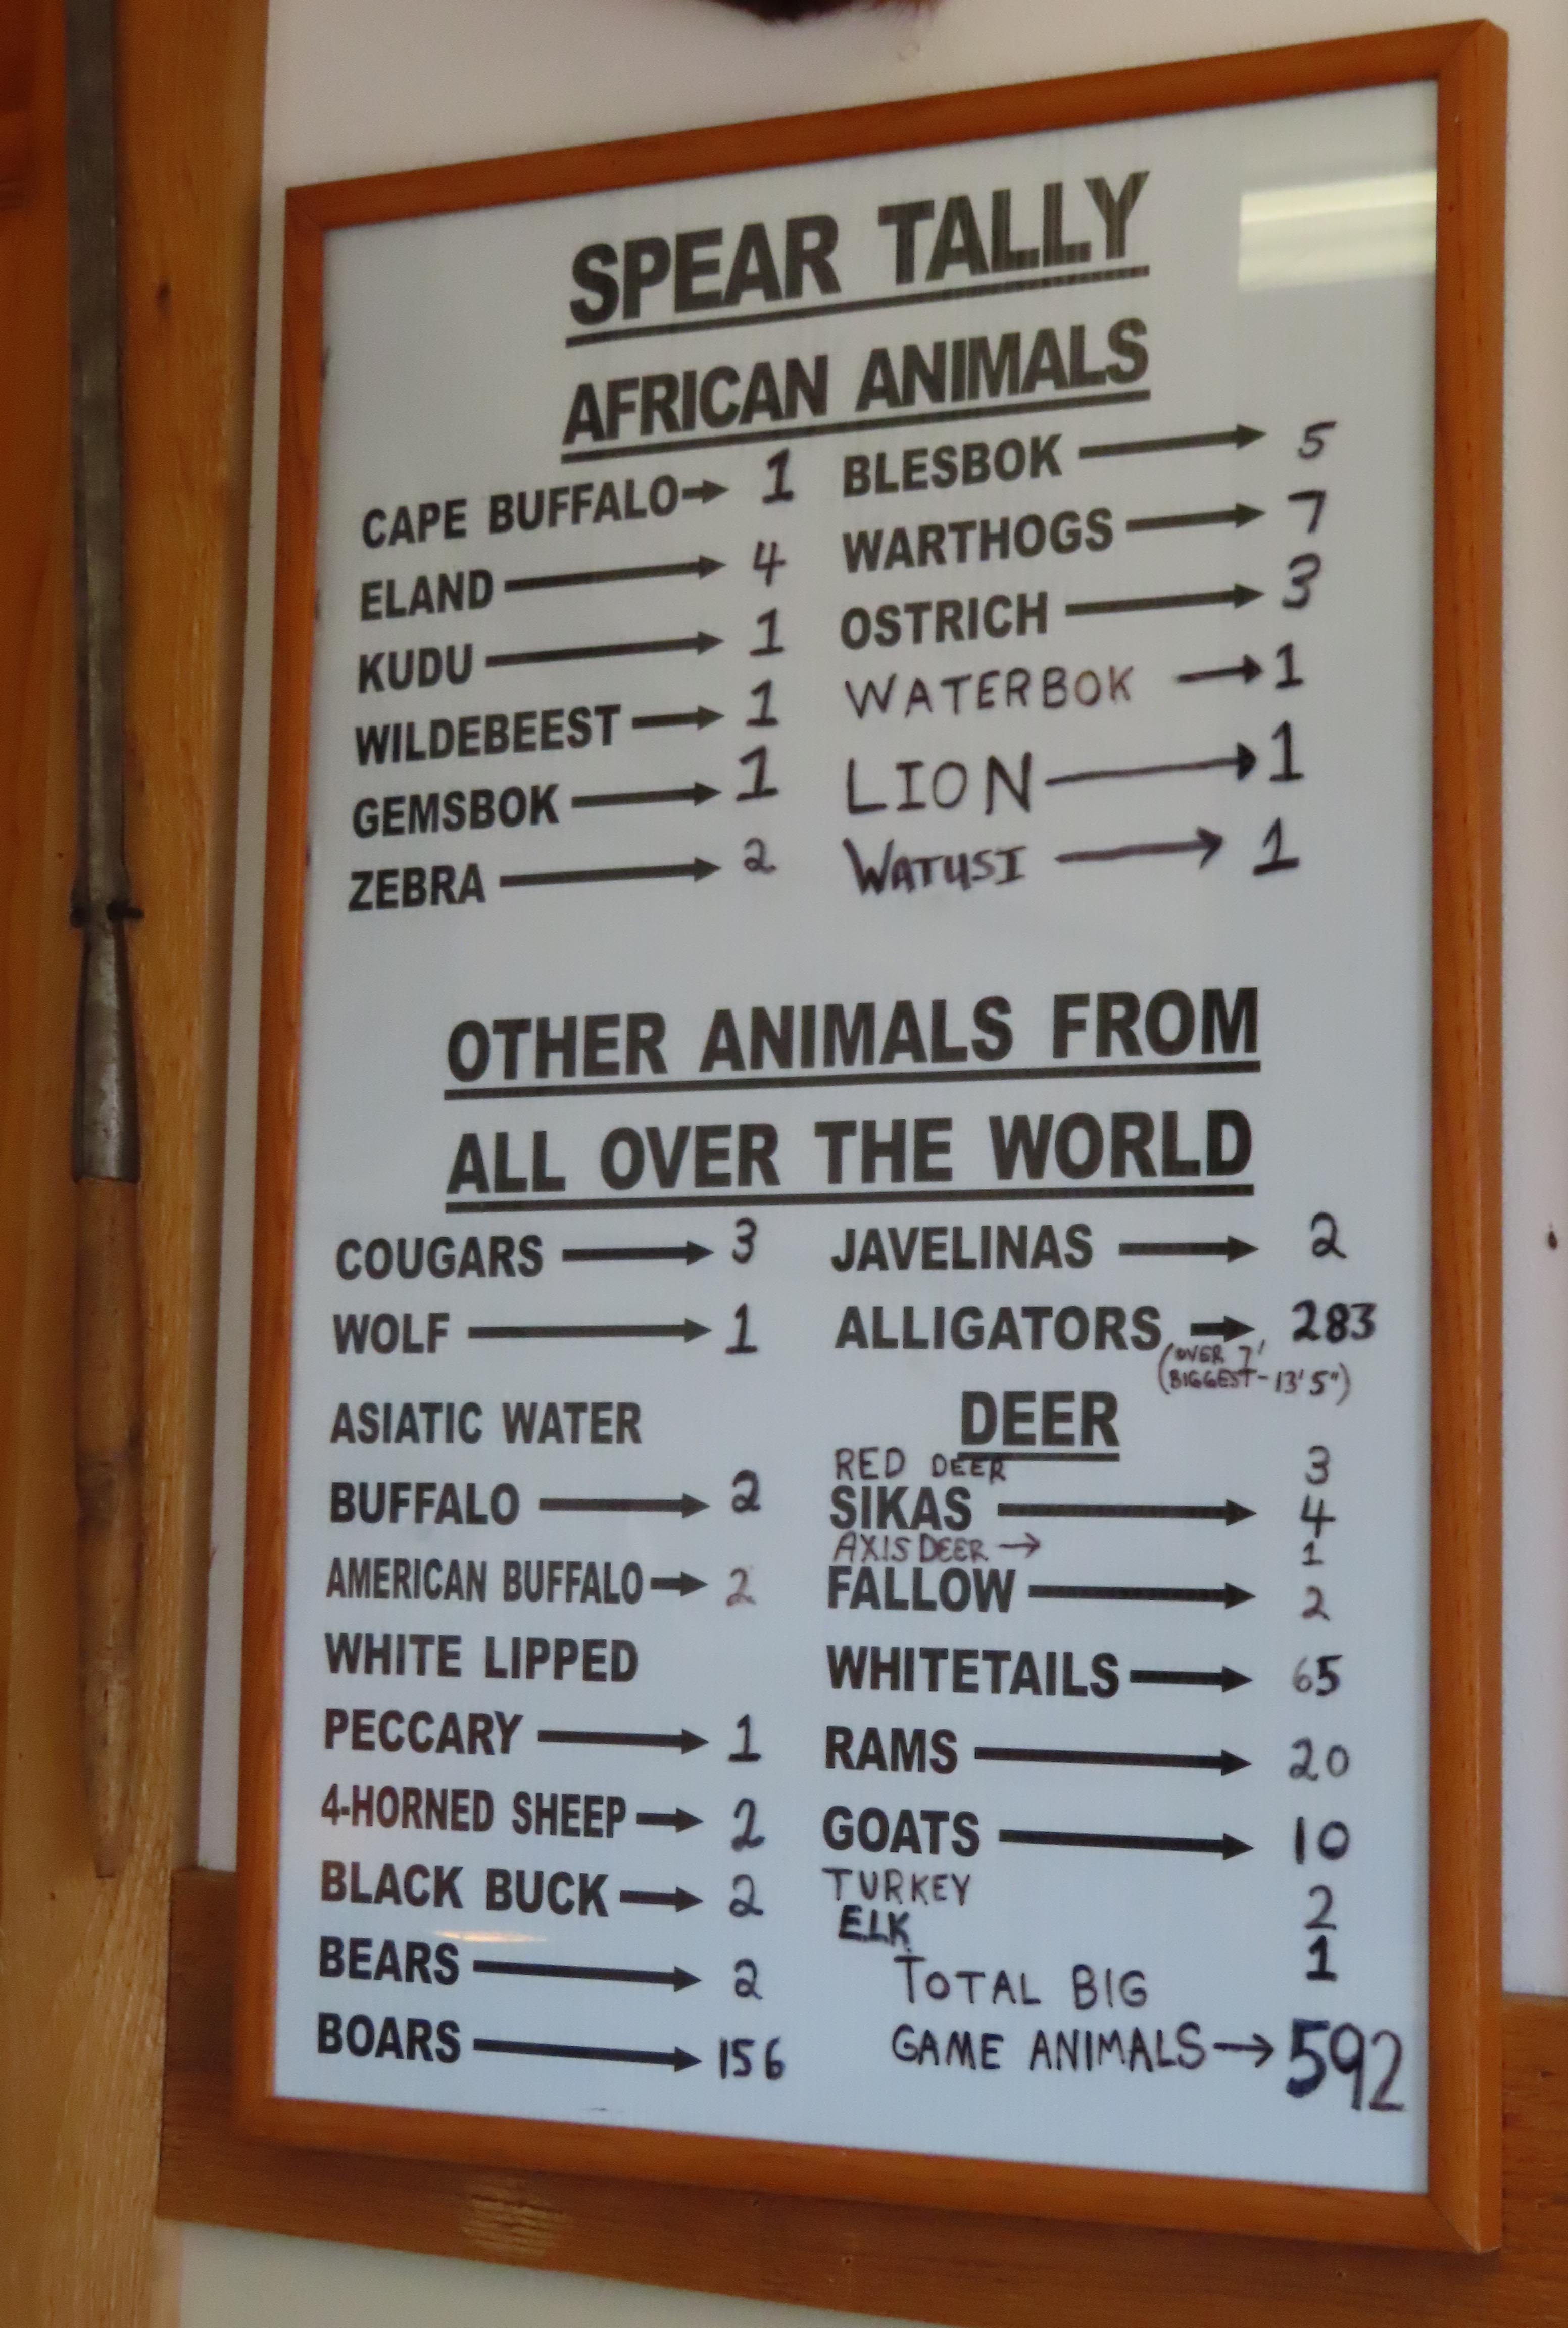 SPEAR TALLY
AFRICAN ANIMALS
CAPE BUFFALO→ 1
ELAND → 4
KUDU → 1
WILDEBEEST → 1
GEMSBOK → 1
ZEBRA → 2
BLESBOK → 5
WARTHOGS → 7
OSTRICH → 3
WATERBOK → 1
LION → 1
WATUSI → 1
OTHER ANIMALS FROM
ALL OVER THE WORLD
COUGARS → 3
WOLF → 1
ASIATIC WATER
BUFFALO → 2
AMERICAN BUFFALO → 2
WHITE LIPPED
PECCARY → 1
4-HORNED SHEEP → 2
BLACK BUCK → 2
BEARS → 2
BOARS → 156
JAVELINAS → 2
ALLIGATORS → 283
(OVER 7'
BIGGEST-13'5")
DEER
RED DEER 3
SIKAS → 4
AXIS DEER → 1
FALLOW → 2
WHITETAILS → 65
RAMS → 20
GOATS → 10
TURKEY 2
ELK 1
TOTAL BIG
GAME ANIMALS → 592